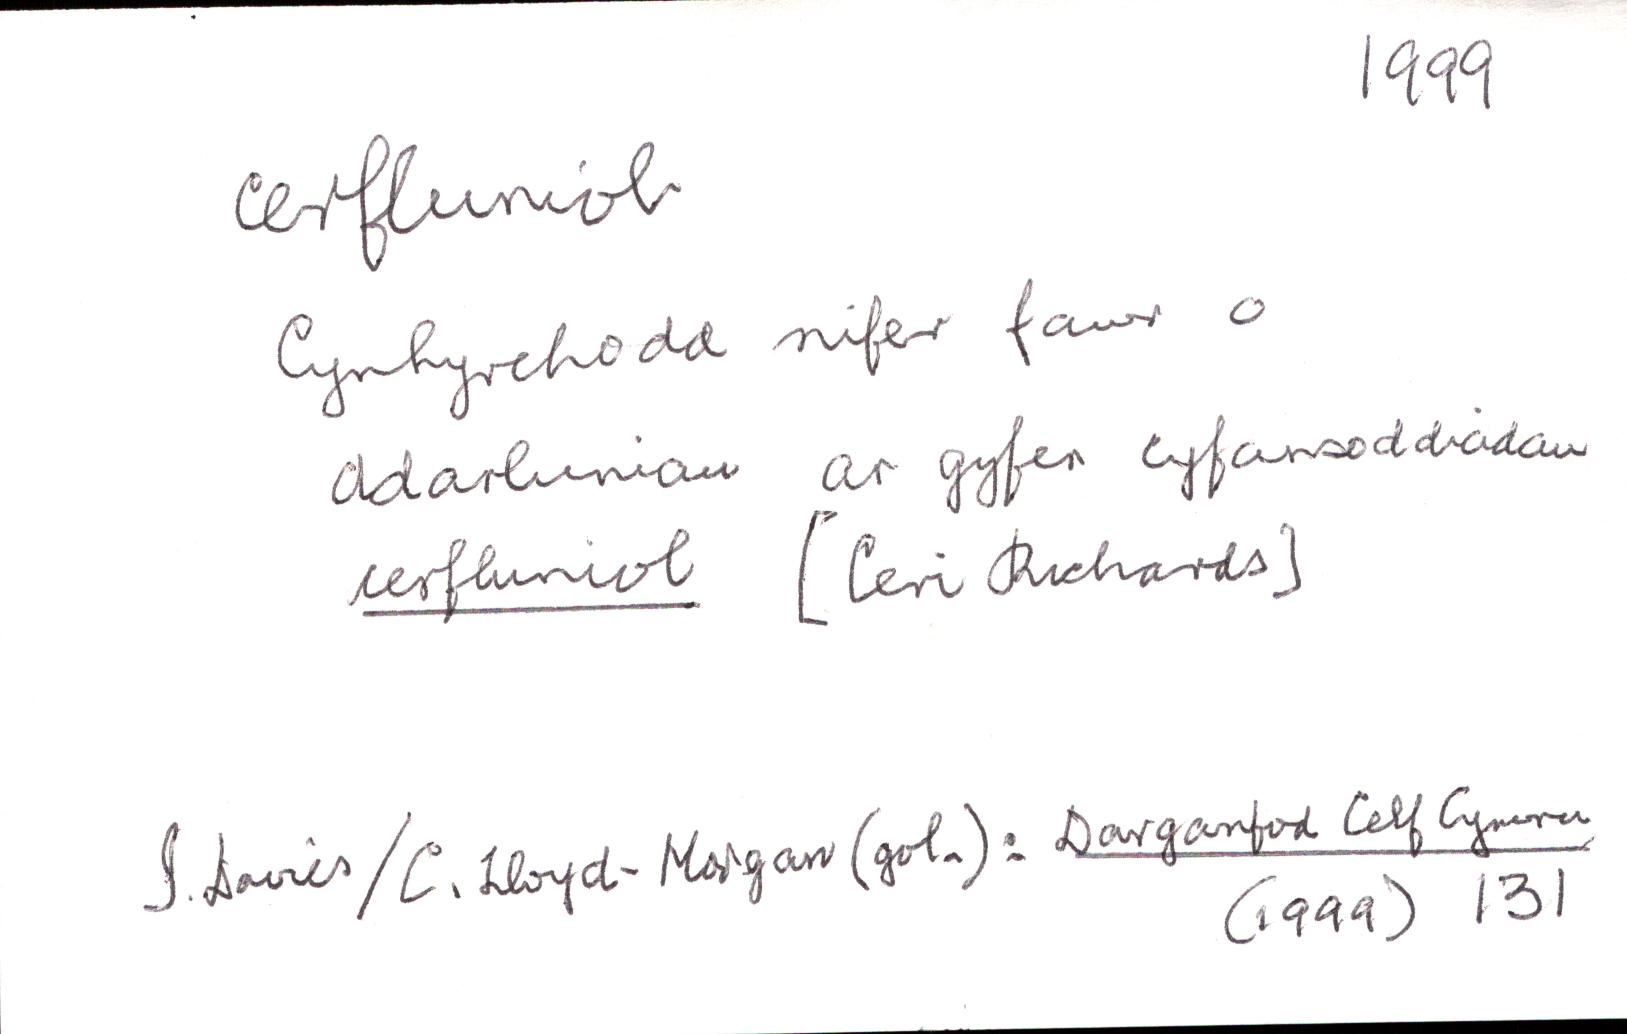 1999
cerfluniol
Cynhyrchodd nifer fawr o
ddarluniau ar gyfer cyfansoddiadau
cerfluniol [Ceri Richards]
I. Davies/C. Lloyd-Morgan (gol.): Darganfod Celf Cymru
(1999) 131